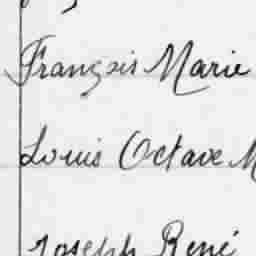 François Marie
Louis Octave M
Joseph René